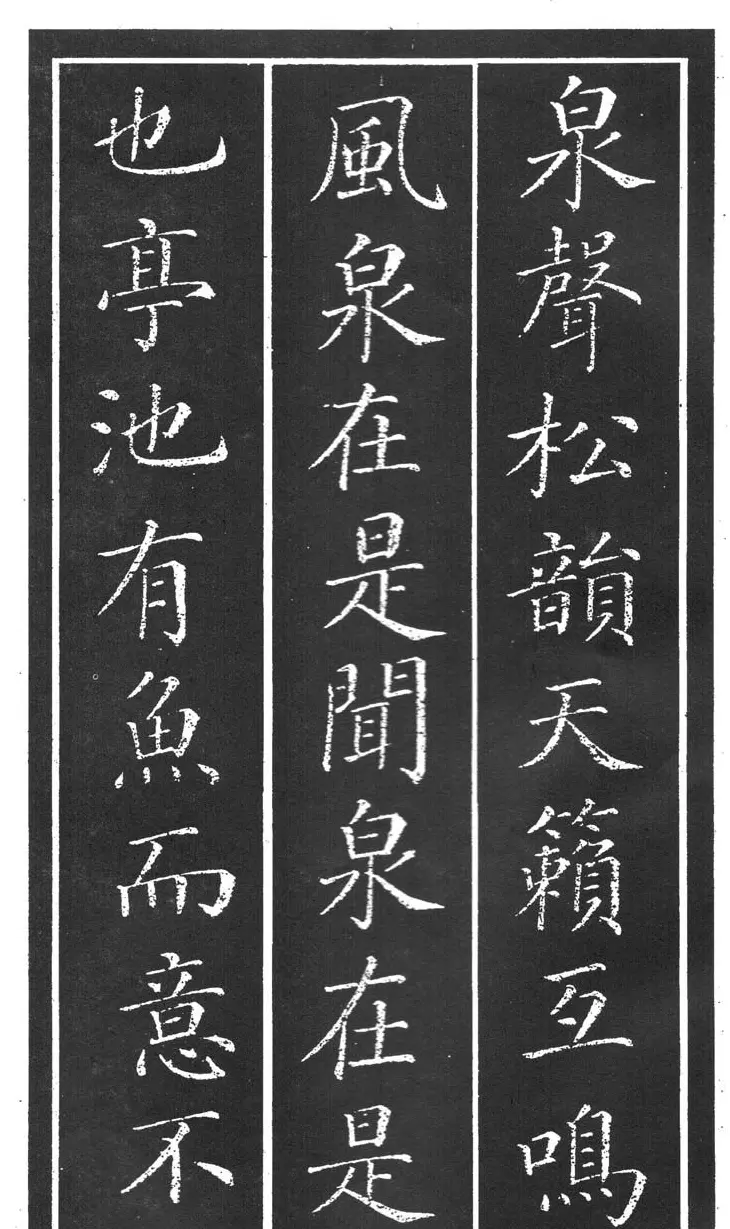 泉聲松韻天籟互鳴
風泉在是聞泉在是
也亭池有魚而意不